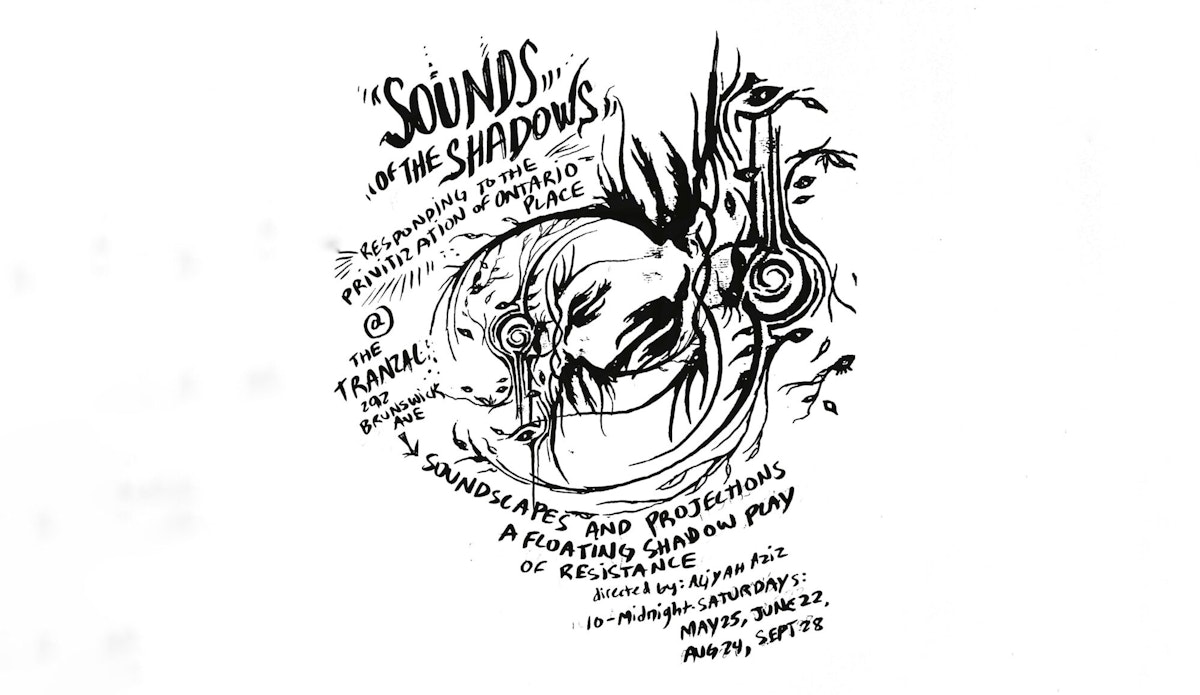 "SOUNDS
OF THE SHADOWS"
RESPONDING TO THE
PRIVITIZATION OF ONTARIO
PLACE
@
THE
TRANZAC:
292
BRUNSWICK
AVE
SOUNDSCAPES AND PROJECTIONS
A FLOATING SHADOW PLAY
OF RESISTANCE
directed by: ALiYAH Aziz
10-Midnight-SATURDAYS:
MAY 25, JUNE 22,
AUG 24, SEPT 28